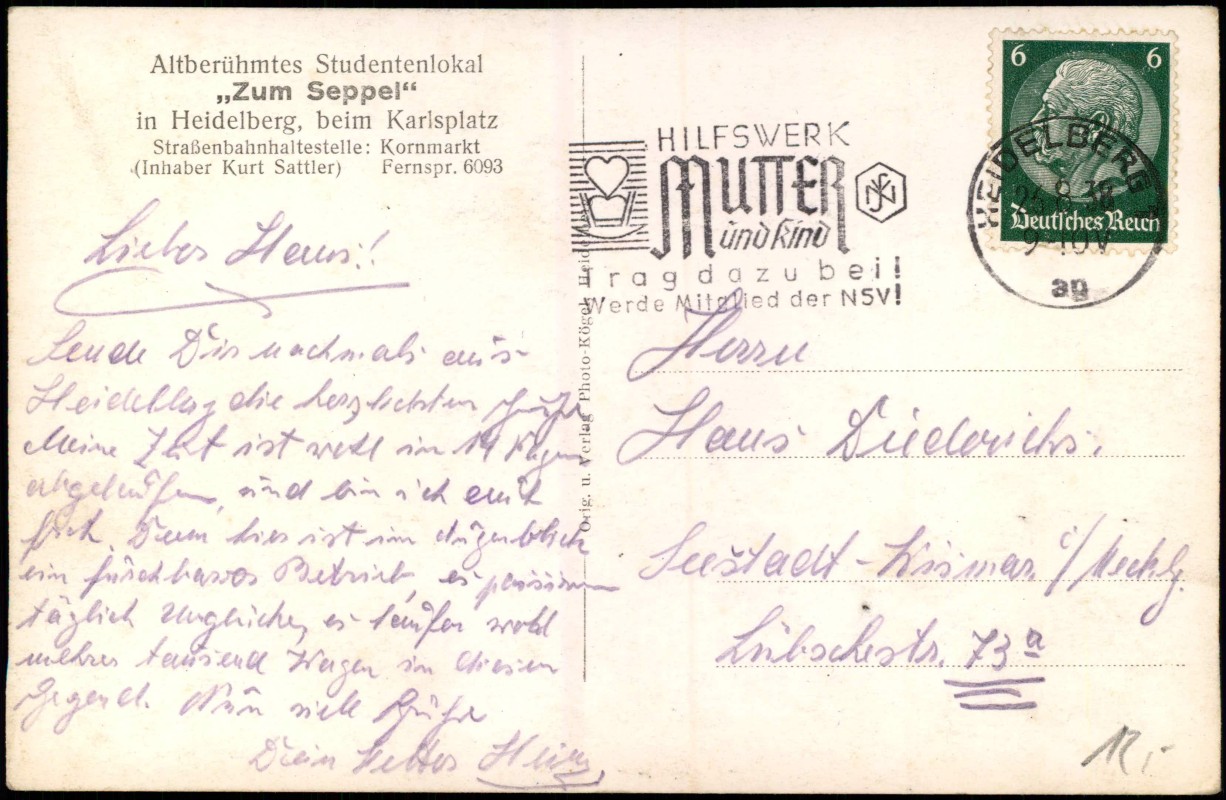 Altberühmtes Studentenlokal
„Zum Seppel“
in Heidelberg, beim Karlsplatz
Straßenbahnhaltestelle: Kornmarkt
(Inhaber Kurt Sattler) Fernspr. 6093
Liebes Hans!
Sende Dir nochmals aus
Heidelberg die herzlichsten Grüße
Meine Zeit ist wohl in 14 Tagen
abgelaufen, und bin ich auch
froh. Denn hier ist im Augenblick
ein furchtbares Betrieb, es passieren
täglich Unglücke, es laufen wohl
mehrer tausend Wagen in diesen
Gegend. Nun viele Grüße
Dein
Orig. u. Verlag Photo-Kögel
HILFSWERK
MUTTER
und Kind
NSV
Trag dazu bei!
Werde Mitglied der NSV!
6 6
Deutsches Reich
HEIDELBERG
9-10V
ag
Herrn
Hans Diederichs.
Seestadt-Wismar i/Meckl.
Lübschestr. 73a
12,-